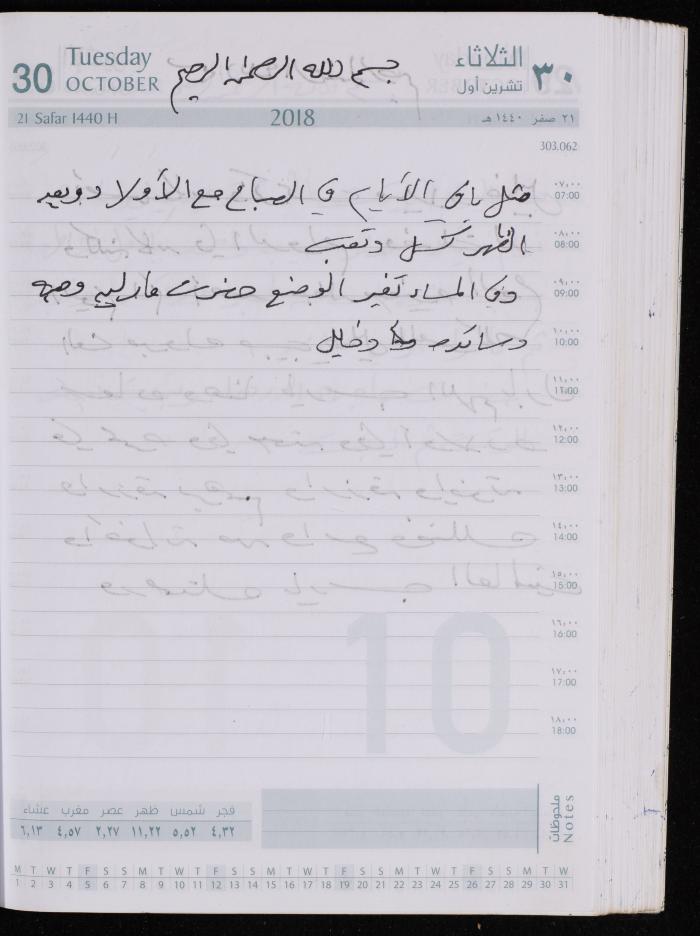 30
Tuesday
OCTOBER
بسم الله الرحمن الرحيم
الثلاثاء
تشرين أول
٣٠
21 Safar 1440 H
2018
٢١ صفر ١٤٤٠ هـ
303.062
٠٧,٠٠
07:00
مثل باقي الأيام في الصباح مع الأولاد وبعد
٠٨,٠٠
08:00
الظهر كسل وتعب
٠٩,٠٠
09:00
وفي المساء تغير الوضع حضرت
١٠,٠٠
10:00
وخليل
١١,٠٠
11:00
١٢,٠٠
12:00
١٣,٠٠
13:00
١٤,٠٠
14:00
١٥,٠٠
15:00
١٦,٠٠
16:00
١٧,٠٠
17:00
١٨,٠٠
18:00
10
ملحوظات
Notes
فجر شمس ظهر عصر مغرب عشاء
٤,٣٢ ٥,٥٢ ١١,٢٢ ٢,٢٧ ٤,٥٧ ٦,١٣
M T W T F S S M T W T F S S M T W T F S S M T W T F S S M T W
1 2 3 4 5 6 7 8 9 10 11 12 13 14 15 16 17 18 19 20 21 22 23 24 25 26 27 28 29 30 31